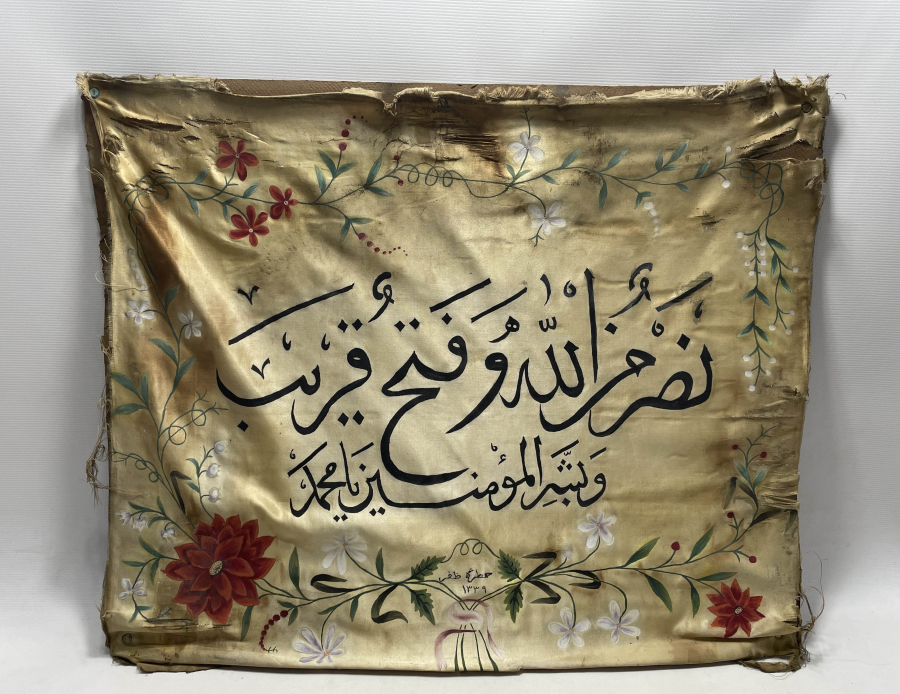 نَصْرٌ مِنَ اللّٰهِ وَفَتْحٌ قَرِيبٌ
وَبَشِّرِ الْمُؤْمِنِينَ يَا مُحَمَّد
ظفر
١٣٣٩